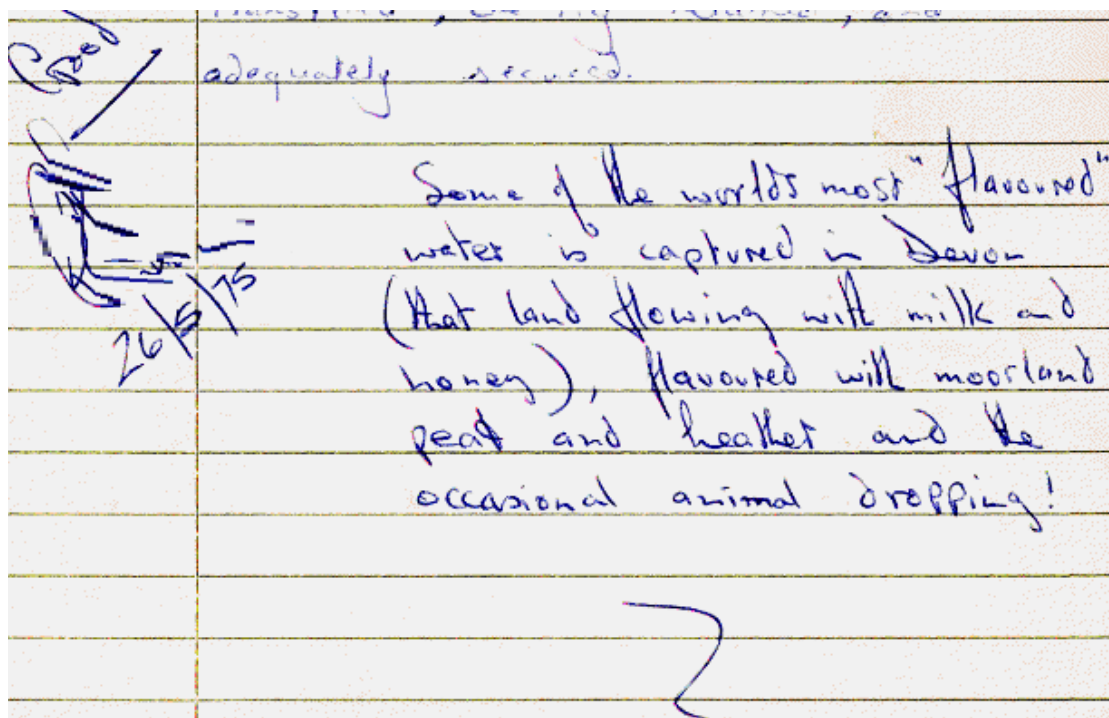 Good
adequately secured.
Some of the worlds most "flavoured"
water is captured in Devon
26/5/75
(that land flowing with milk and
honey), flavoured with moorland
peat and heather and the
occasional animal dropping!